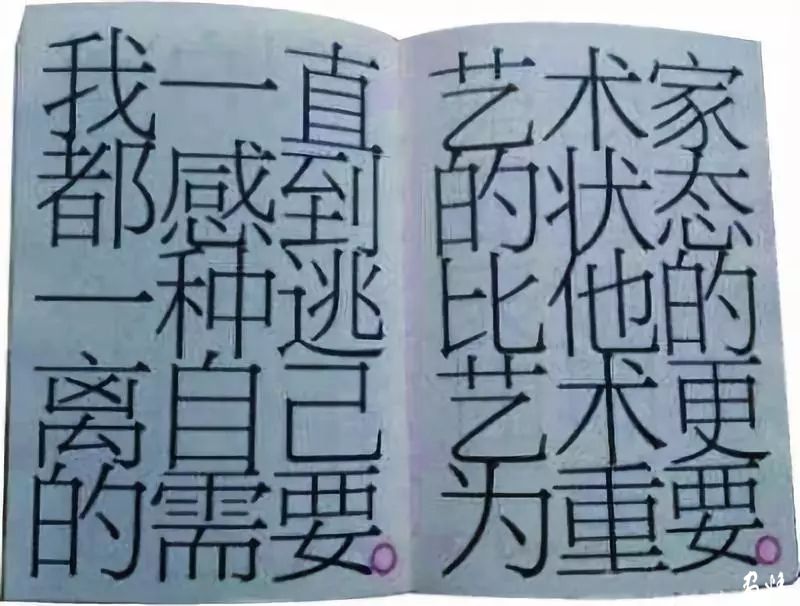 我一直
都感到
一种逃
离自己
的需要。
艺术家
的状态
比他的
艺术更
为重要。